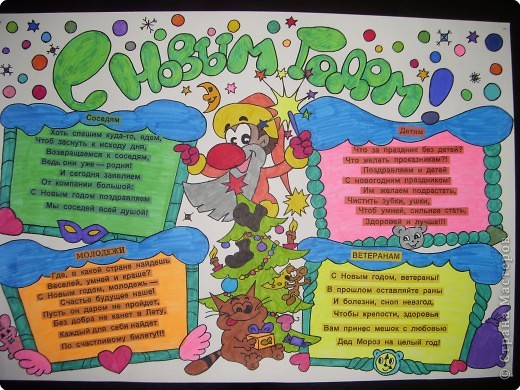 С Новым Годом!
Соседям
Хоть спешим куда-то, едем,
Чтоб заснуть к исходу дня,
Возвращаемся к соседям,
Ведь они уже — родня!
И сегодня заявляем
От компании большой:
С Новым годом поздравляем
Мы соседей всей душой!
Детям
Что за праздник без детей?
Что желать проказникам?!
Поздравляем и детей
С новогодним праздником!
Им желаем подрастать,
Чистить зубки, ушки,
Чтоб умней, сильнее стать,
Здоровей и лучше!!!
МОЛОДЕЖИ
Где, в какой стране найдешь
Веселей, умней и краше?
С Новым годом, молодежь —
Счастье будущее наше!
Пусть он даром не пройдет,
Без добра не канет в Лету,
Каждый для себя найдет
По счастливому билету!!!
ВЕТЕРАНАМ
С Новым годом, ветераны!
В прошлом оставляйте раны
И болезни, снол невзгод,
Чтобы крепости, здоровья
Вам принес мешок с любовью
Дед Мороз на целый год!
© Страна Мастеров